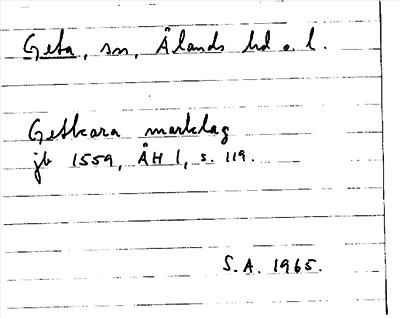 Geta, sn, Ålands hd o. l.
Getkara marklag
jb 1559, ÅH 1, s. 119.
S.A. 1965.